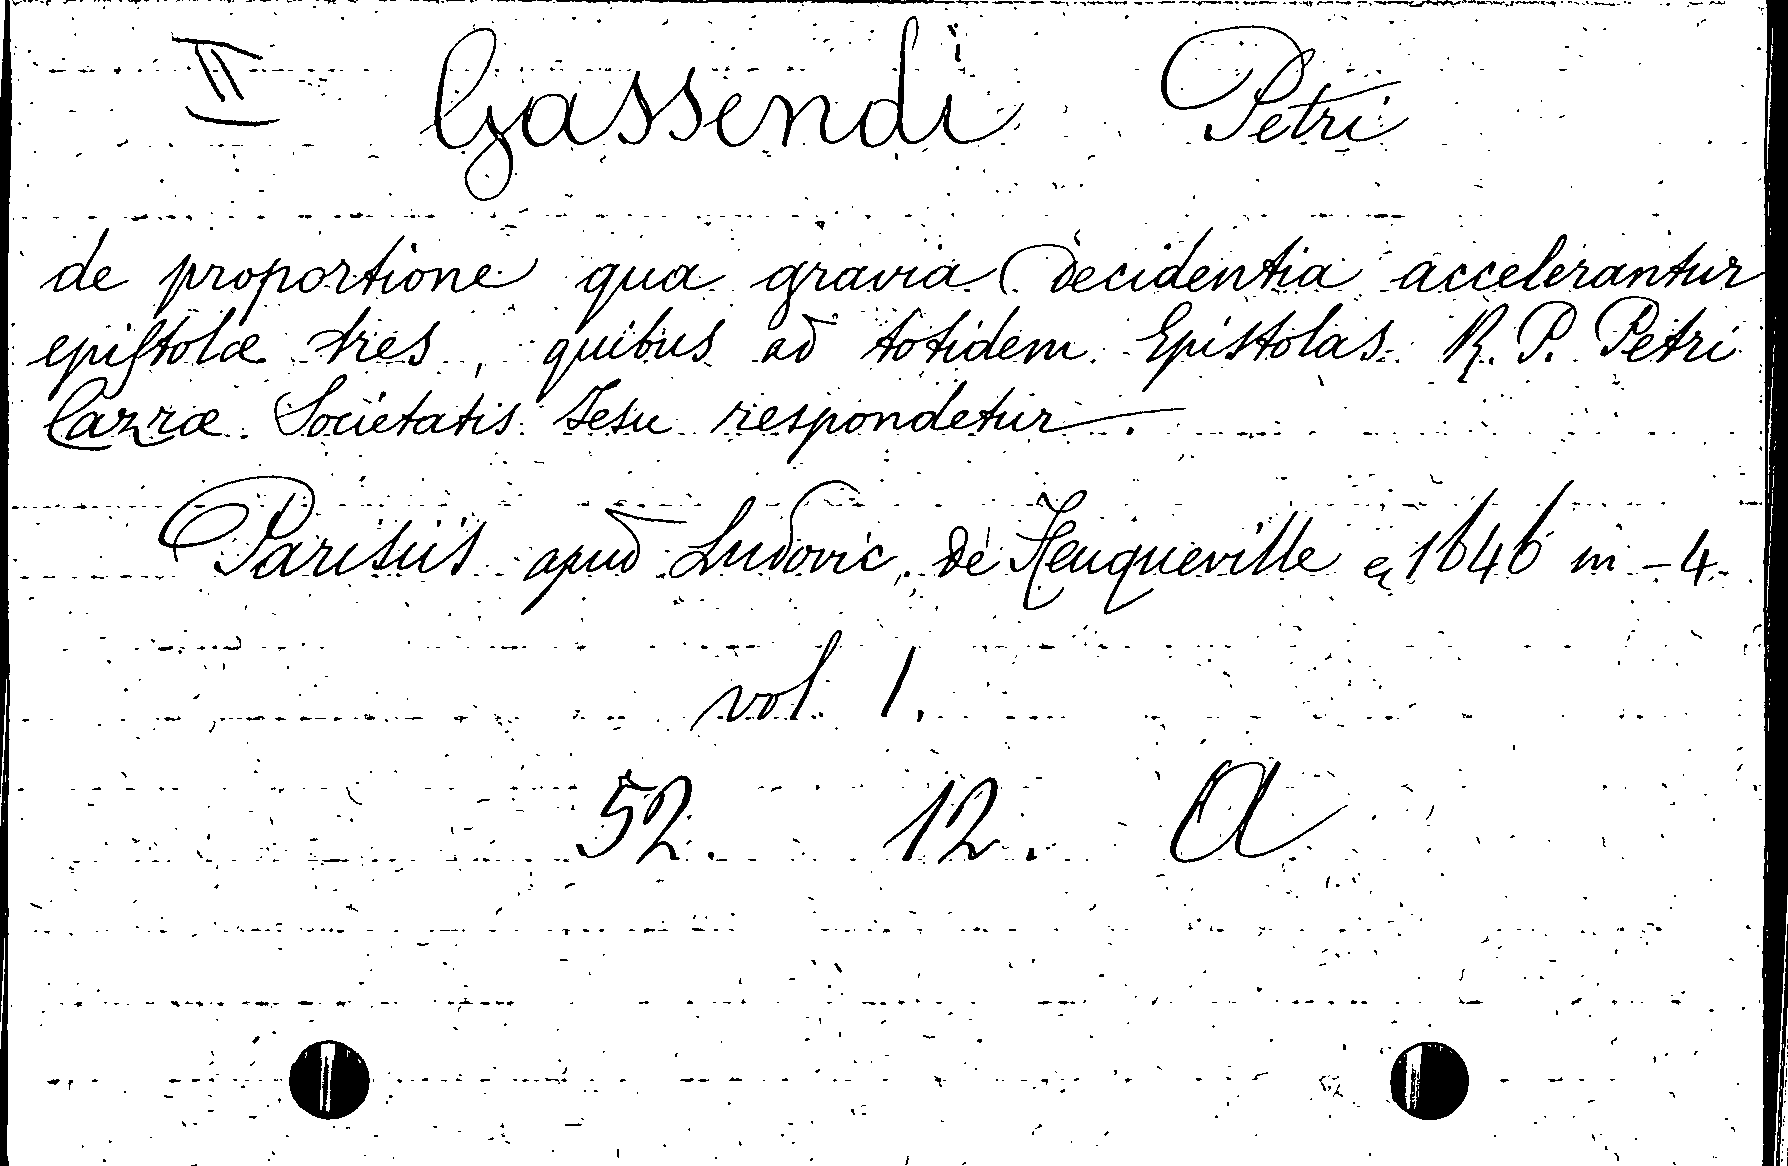 II Gassendi Petri
de proportione qua gravia decidentia accelerantur
epistolæ tres, quibus ad totidem Epistolas R. P. Petri
Cazræ Societatis Jesu respondetur.
Parisiis apud Ludovic. de Heuqueville 1646 in-4.
vol. 1.
52. 12. A